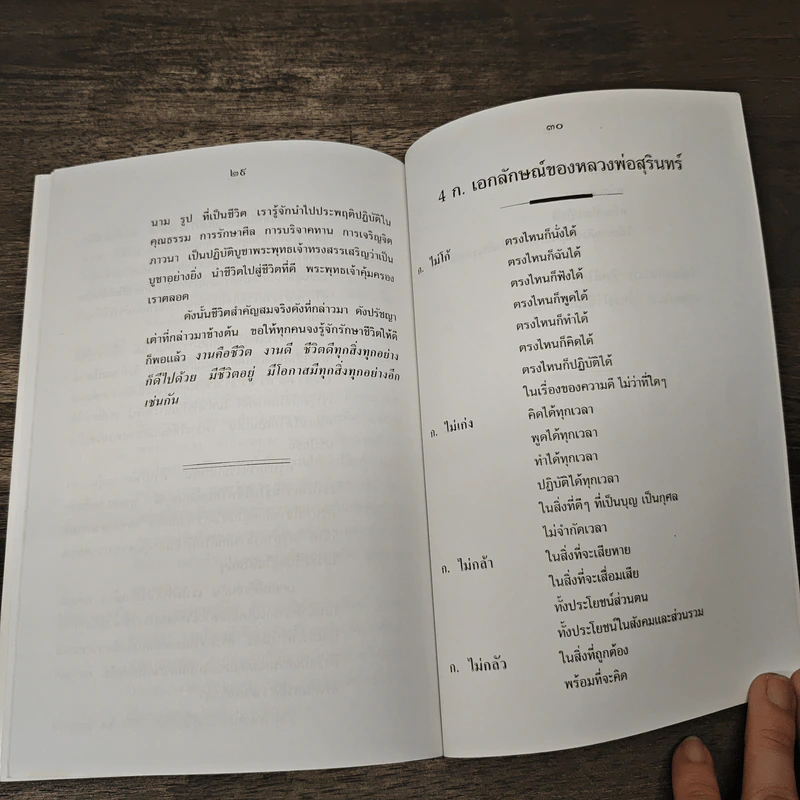 ๒๙
นาม รูป ที่เป็นชีวิต เรารู้จักนำไปประพฤติปฏิบัติใน
คุณธรรม การรักษาศีล การบริจาคทาน การเจริญจิต
ภาวนา เป็นปฏิบัติบูชาพระพุทธเจ้าทรงสรรเสริญว่าเป็น
บูชาอย่างยิ่ง นำชีวิตไปสู่ชีวิตที่ดี พระพุทธเจ้าคุ้มครอง
เราตลอด
ดังนั้นชีวิตสำคัญสมจริงดังที่กล่าวมา ดังปรัชญา
เต่าที่กล่าวมาข้างต้น ขอให้ทุกคนจงรู้จักรักษาชีวิตให้ดี
ก็พอแล้ว งานคือชีวิต งานดี ชีวิตดีทุกสิ่งทุกอย่าง
ก็ดีไปด้วย มีชีวิตอยู่ มีโอกาสมีทุกสิ่งทุกอย่างอีก
เช่นกัน
๓๐
4 ก. เอกลักษณ์ของหลวงพ่อสุรินทร์
ก. ไม่โก้ ตรงไหนก็นั่งได้
ตรงไหนก็ฉันได้
ตรงไหนก็ฟังได้
ตรงไหนก็พูดได้
ตรงไหนก็ทำได้
ตรงไหนก็คิดได้
ตรงไหนก็ปฏิบัติได้
ในเรื่องของความดี ไม่ว่าที่ใดๆ
ก. ไม่เก่ง คิดได้ทุกเวลา
พูดได้ทุกเวลา
ทำได้ทุกเวลา
ปฏิบัติได้ทุกเวลา
ในสิ่งที่ดีๆ ที่เป็นบุญ เป็นกุศล
ไม่จำกัดเวลา
ก. ไม่กล้า ในสิ่งที่จะเสียหาย
ในสิ่งที่จะเสื่อมเสีย
ทั้งประโยชน์ส่วนตน
ทั้งประโยชน์ในสังคมและส่วนรวม
ก. ไม่กลัว ในสิ่งที่ถูกต้อง
พร้อมที่จะคิด